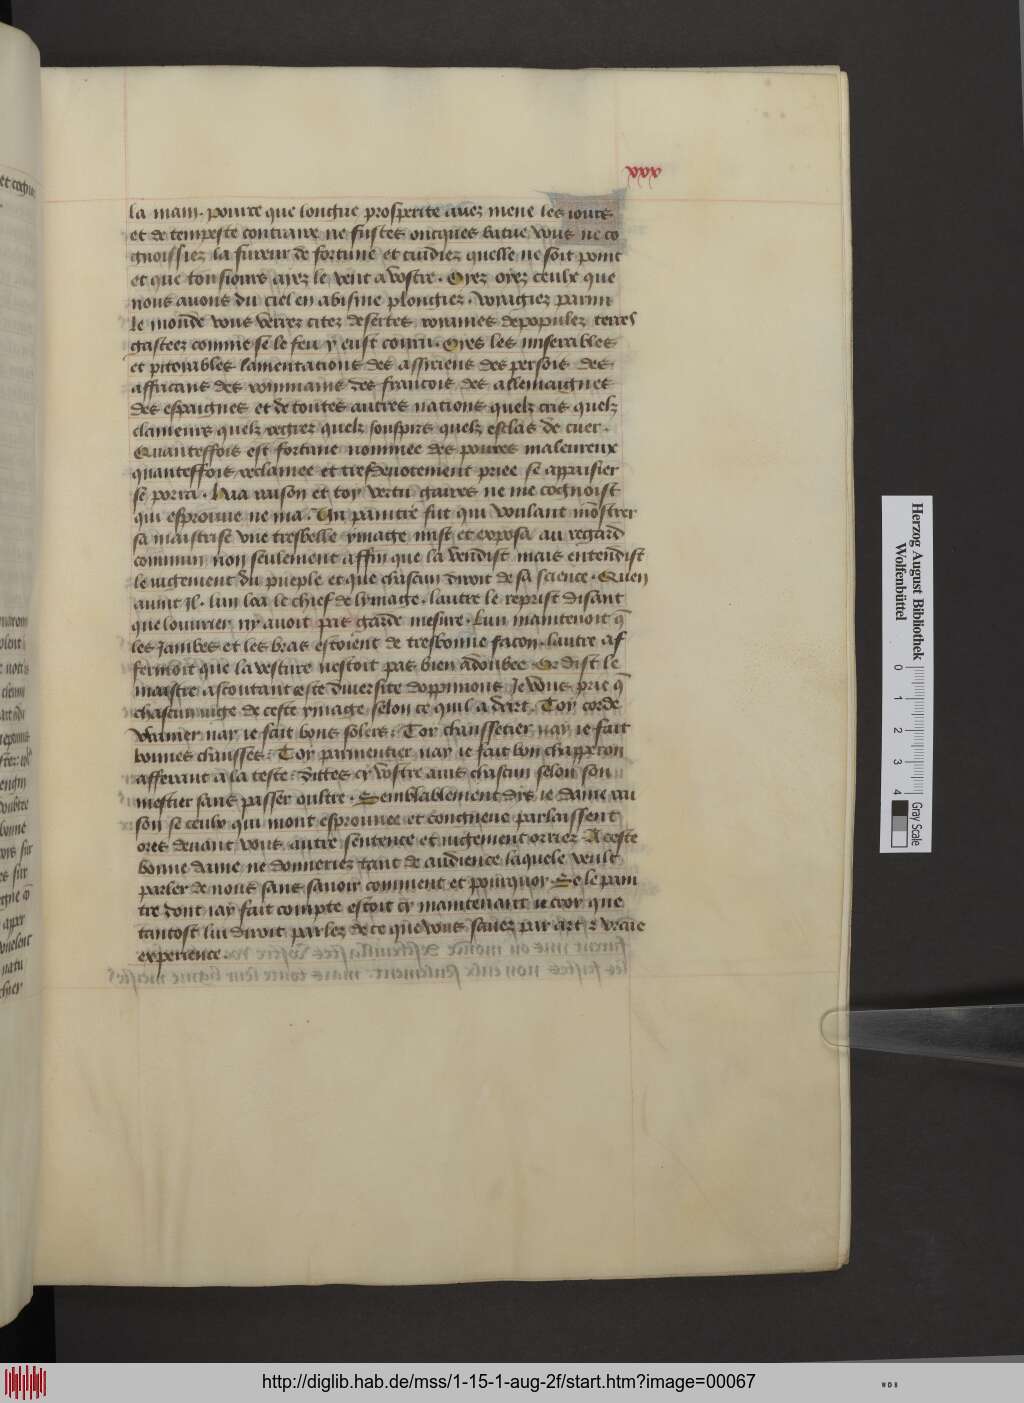 xxx
la main. pource que longue prosperite avez mene les iours
et de tempeste contraire ne fustes oncques batue vous ne co
gnoissiez la fureur de fortune et cuidiez quelle ne soit point
et que tousiours ayez le vent a vostre. Oyez oyez ceulx que
nous avons du ciel en abisme plongiez. voyagiez parmi
le monde vous verrez citez desertes royames depopulez terres
gasteez comme se le feu y eust couru. Oyes les miserables
et pitoyables lamentations des assiriens des persois des
affricans des rommains des francois des allemaignes
des espaignes et de toutes autres nations quelz cris quelz
clameurs quelz regrez quelz souspirs quelz esclas de cuer.
Quanteffois est fortune nommee des poures maleureux
quanteffois reclamee et tresdevotement priee se appaisier
se porra. Vraa raison et toy vertu gaires ne me cognoist
qui esprouve ne ma. Un paintre fut qui voulant mostrer
sa maistrise une tresbelle ymage mist et exposa au regard
commun non seulement affin que la vendist mais entendist
le iugement du pueple et que chascun diroit de sa science. Quen
avint il. lun loa le chief de lymage. lautre le reprist disant
que louvrier ny avoit pas garde mesure. Lun maintenoit q̄
les jambes et les bras estoient de tresbonne facon. lautre af
fermoit que la vesture nestoit pas bien adoubee. Or dist le
maistre ascoutant ceste diversite doppinions Je vous prie q̄
chascun iuge de ceste ymage selon ce quil a dart. Toy corde
vvanier nay ie fait bons solers: Toy chaussetier nay ie fait
bonnes chausses: Toy parmentier nay ie fait bon chapperon
afferant a la teste: dittes ey vostre avis chascun selon son
mestier sans passer oultre. Semblablement dys ie dame rai
son se ceulx qui mont esprouvee et congneue parlaissent
ores devant vous autre sentence et iugement orriez. A ceste
bonne dame ne donneriez tant de audience laquele veult
parler de nous sans savoir comment et pourquoy. Se le pain
tre dont iay fait compte estoit cy maintenant ie croy que
tantost lui diroit parlez de ce que vous savez par art z vraie
experience.
Herzog August Bibliothek
Wolfenbüttel
0 1 2 3 4
Gray Scale
http://diglib.hab.de/mss/1-15-1-aug-2f/start.htm?image=00067
WDB